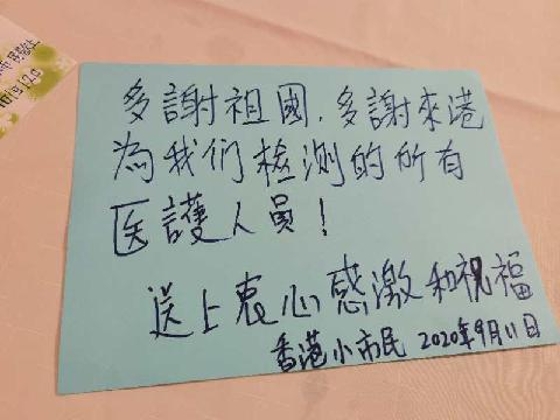 多謝祖國，多謝來港
為我们檢測的所有
医護人員！
送上衷心感激和祝福
香港小市民 2020年9月11日